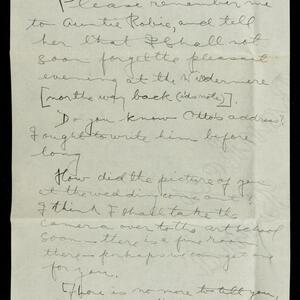 Please remember me
to Auntie Robie, and tell
her that I shall not
soon forget the pleasant
evening at the Windermere
[nor the way back (its note)].
Do you know Otto's address?
I ought to write him before
long
How did the picture of you
at the wedding come out?
I think I shall take the
camera over to the art school
soon — there is a fine room
there — perhaps we can get one
for you.
There is no more to tell you,